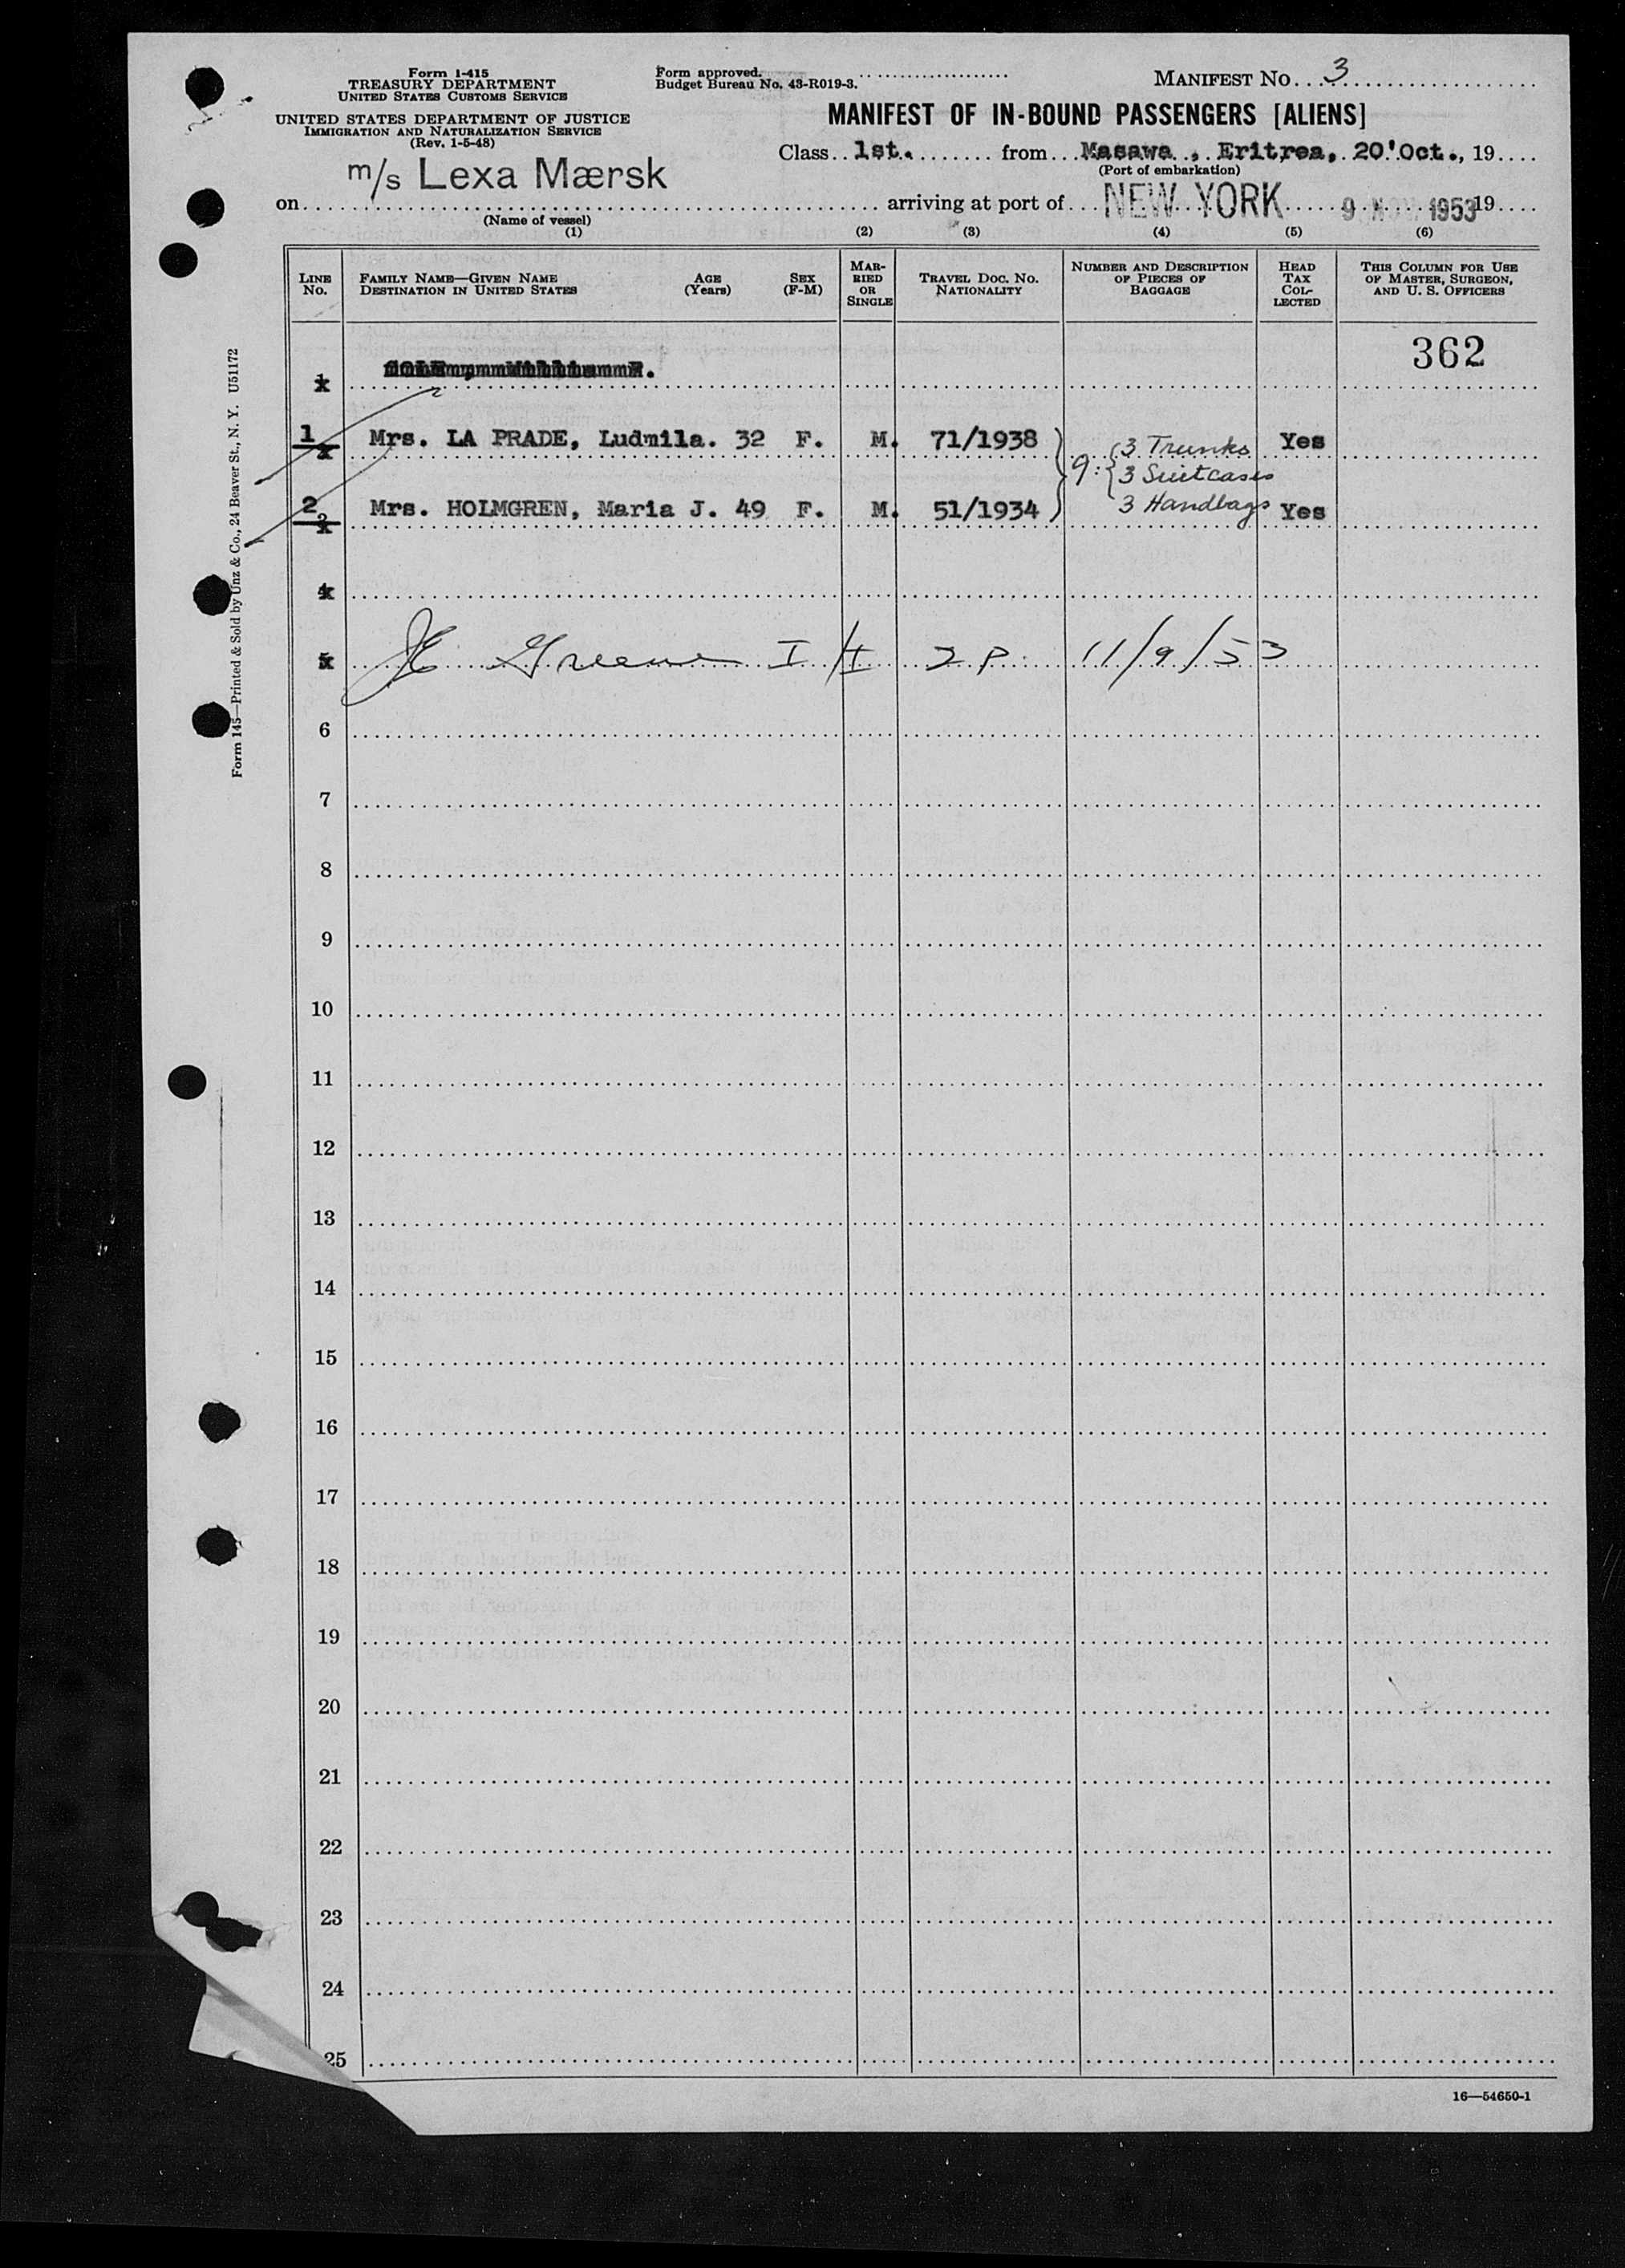 Form I-415
TREASURY DEPARTMENT
UNITED STATES CUSTOMS SERVICE
UNITED STATES DEPARTMENT OF JUSTICE
IMMIGRATION AND NATURALIZATION SERVICE
(Rev. 1-5-48)
Form approved.
Budget Bureau No. 43-R019-3.
MANIFEST NO. 3
MANIFEST OF IN-BOUND PASSENGERS [ALIENS]
Class 1st. from Masawa, Eritrea, 20'Oct., 19
(Port of embarkation)
on m/s Lexa Mærsk arriving at port of NEW YORK 9 NOV 1953 19
(Name of vessel)
(1) (2) (3) (4) (5) (6)
LINE NO.
FAMILY NAME—GIVEN NAME AGE (Years) SEX (F-M)
DESTINATION IN UNITED STATES
MARRIED OR SINGLE
TRAVEL DOC. NO. NATIONALITY
NUMBER AND DESCRIPTION OF PIECES OF BAGGAGE
HEAD TAX COLLECTED
THIS COLUMN FOR USE OF MASTER, SURGEON, AND U. S. OFFICERS
362
1 Mrs. LA PRADE, Ludmila. 32 F. M. 71/1938 Yes
9: 3 Trunks
3 Suitcases
3 Handbags
2 Mrs. HOLMGREN, Maria J. 49 F. M. 51/1934 Yes
4
5 Greene 11/9/53
6
7
8
9
10
11
12
13
14
15
16
17
18
19
20
21
22
23
24
25
16—54650-1
Form 145—Printed & Sold by Unz & Co., 24 Beaver St., N. Y. U51172